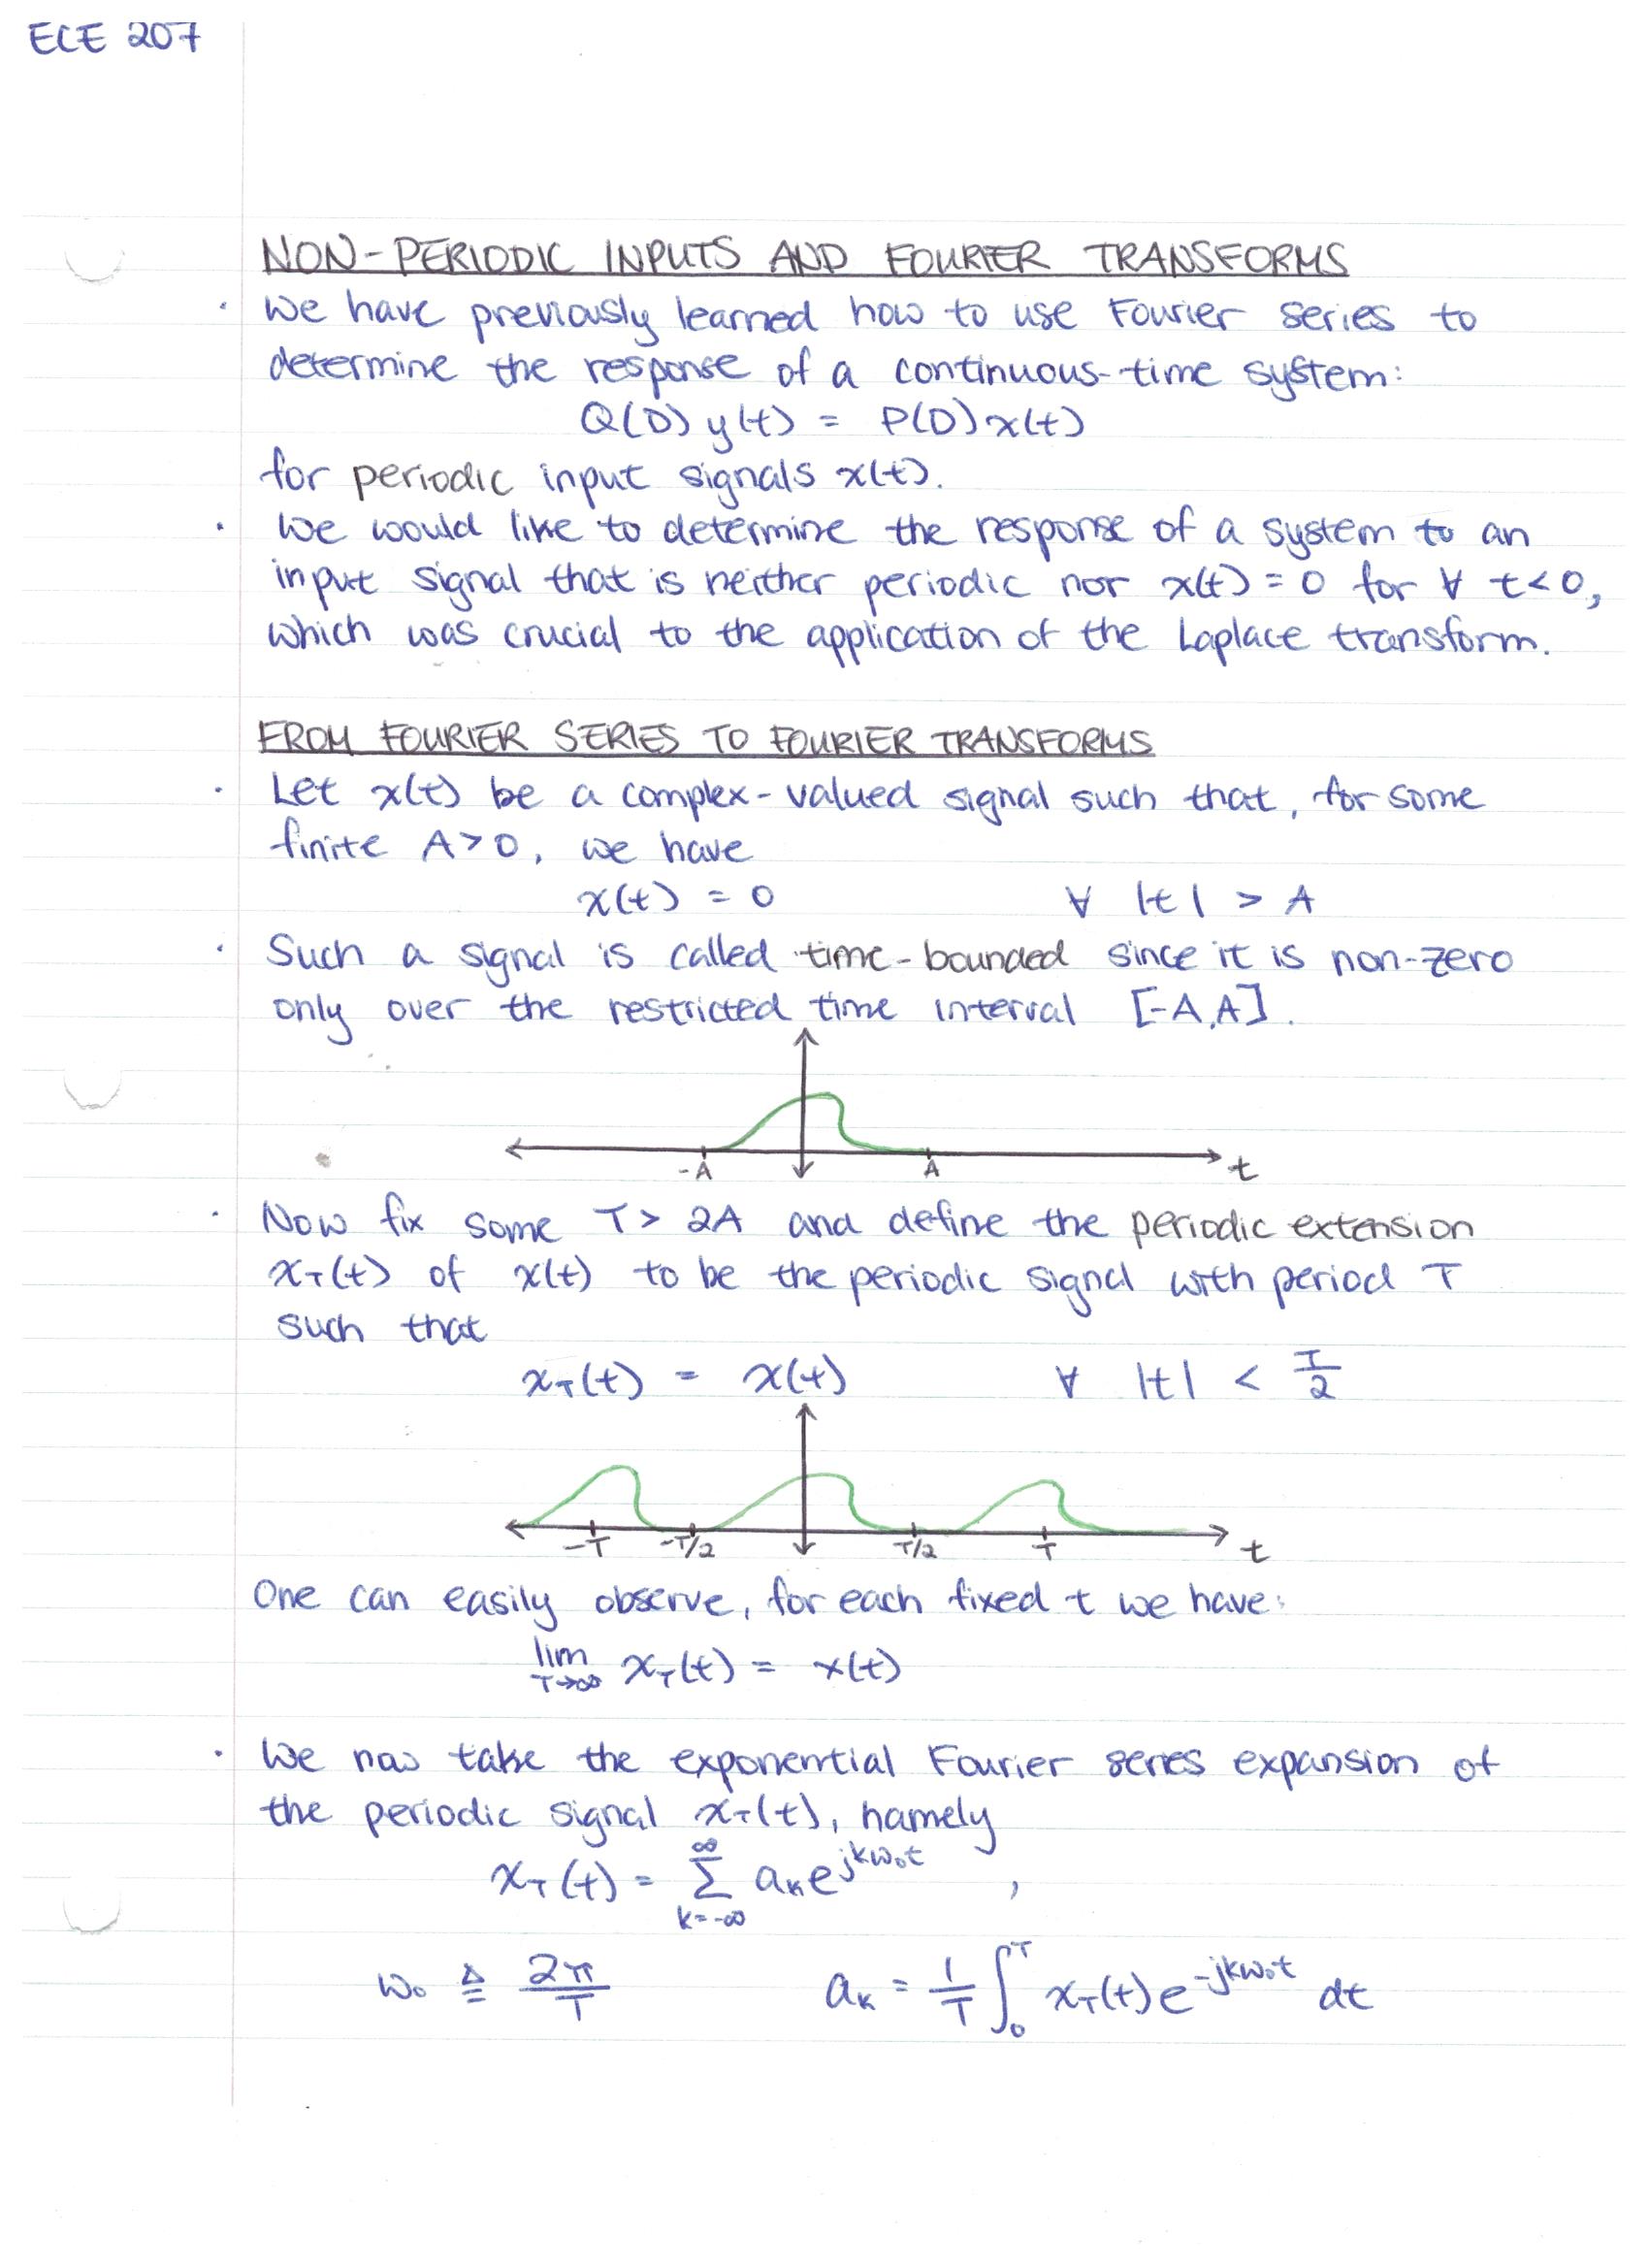 ECE 207
NON-PERIODIC INPUTS AND FOURIER TRANSFORMS
· We have previously learned how to use Fourier series to
determine the response of a continuous-time system:
Q(D) y(t) = P(D) x(t)
for periodic input signals x(t).
· We would like to determine the response of a system to an
input signal that is neither periodic nor x(t) = 0 for ∀ t<0,
which was crucial to the application of the Laplace transform.
FROM FOURIER SERIES TO FOURIER TRANSFORMS
· Let x(t) be a complex-valued signal such that, for some
finite A>0, we have
x(t) = 0 ∀ |t| > A
· Such a signal is called time-bounded since it is non-zero
only over the restricted time interval [-A,A].
-A A t
· Now fix some T > 2A and define the periodic extension
x_T(t) of x(t) to be the periodic signal with period T
such that
x_T(t) = x(t) ∀ |t| < T/2
-T -T/2 T/2 T t
One can easily observe, for each fixed t we have:
lim T→∞ x_T(t) = x(t)
· We now take the exponential Fourier series expansion of
the periodic signal x_T(t), namely
x_T(t) = ∑_{k=-∞}^{∞} a_k e^{jkω₀t} ,
ω₀ ≜ 2π/T a_k = 1/T ∫_0^T x_T(t) e^{-jkω₀t} dt